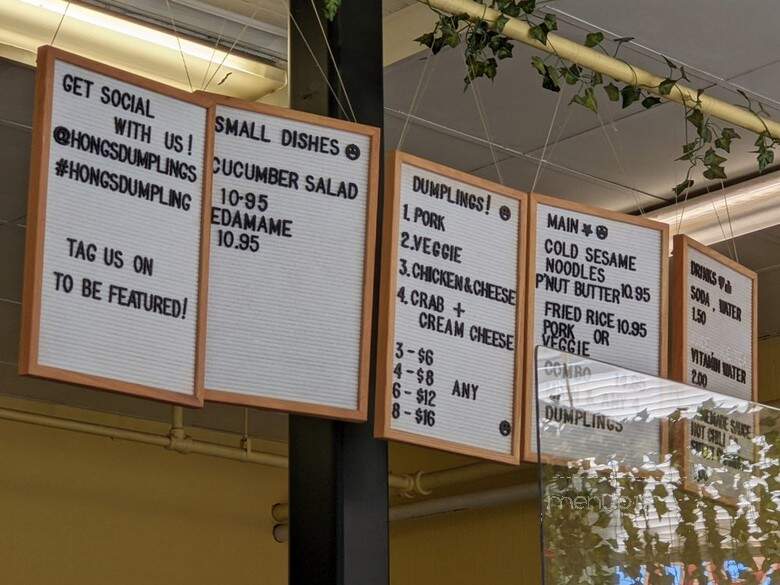 GET SOCIAL
WITH US!
@HONGSDUMPLINGS
#HONGSDUMPLING
TAG US ON
TO BE FEATURED!
SMALL DISHES
CUCUMBER SALAD
10-95
EDAMAME
10.95
DUMPLINGS!
1. PORK
2.VEGGIE
3.CHICKEN&CHEESE
4.CRAB +
CREAM CHEESE
3-$6
4-$8
ANY
6-$12
8-$16
MAIN
COLD SESAME
NOODLES
P'NUT BUTTER 10.95
FRIED RICE 10.95
PORK OR
VEGGIE
COMBO
DUMPLINGS
DRINKS
SODA, WATER
1.50
VITAMIN WATER
2.00
SAUCE
HOT CHILI